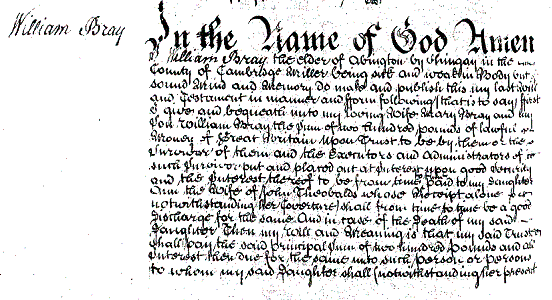 William Bray
In the Name of God Amen
I William Bray the elder of Abington by Shingay in the
County of Cambridge Miller being sick and weak in Body but
sound Mind and Memory do make and publish this my last Will
and Testament in manner and form following (that is to say) first
I give and bequeath unto my loving Wife Mary Bray and my
Son William Bray the Sum of two hundred pounds of lawful
Money of Great Britain Upon Trust to be by them or the
Survivor of them and the Executors and Administrators of
such Survivor put and placed out at Interest upon good Security
and the Interest thereof to be from time paid to my Daughter
Ann the Wife of John Theobalds whose Receipt alone
notwithstanding her Coverture) shall from time to time be a good
discharge for the same And in case of the Death of my said
Daughter Then my Will and Meaning is that my said Trustees
shall pay the said principal Sum of two hundred Pounds and all
Interest then due for the same unto such person or persons
to whom my said Daughter shall (notwithstanding her present